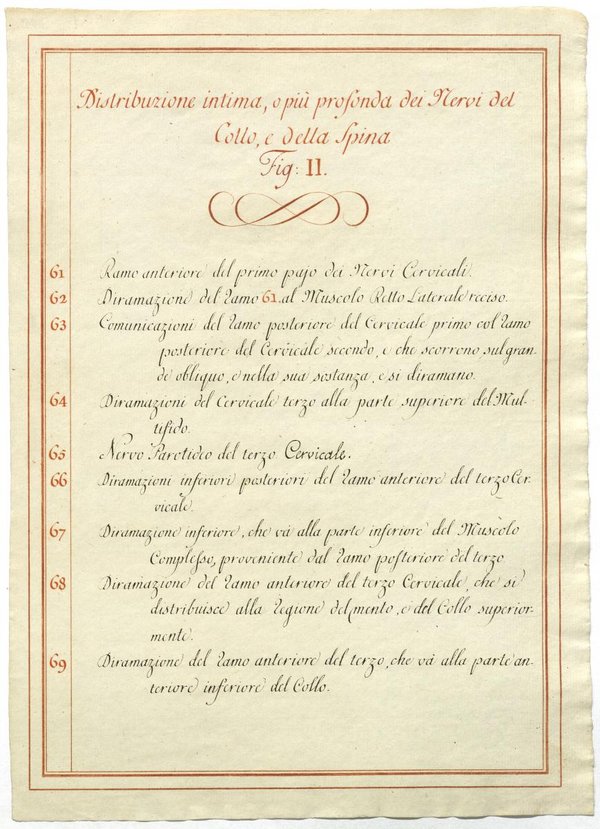 Distribuzione intima, o più profonda dei Nervi del
Collo, e della Spina
Fig: II.
61 Ramo anteriore del primo pajo dei Nervi Cervicali.
62 Diramazione del ramo 61. al Muscolo Retto Laterale reciso.
63 Comunicazioni del ramo posteriore del Cervicale primo col ramo
posteriore del Cervicale secondo, e che scorrono sul gran-
de obliquo, e nella sua sostanza, e si diramano.
64 Diramazioni del Cervicale terzo alla parte superiore del Mul-
tifido.
65 Nervo Parotideo del terzo Cervicale.
66 Diramazioni inferiori posteriori del ramo anteriore del terzo Cer-
vicale.
67 Diramazione inferiore, che và alla parte inferiore del Muscolo
Complesso, proveniente dal ramo posteriore del terzo
68 Diramazione del ramo anteriore del terzo Cervicale, che si
distribuisce alla regione del mento, e del Collo superior-
mente.
69 Diramazione del ramo anteriore del terzo, che và alla parte an-
teriore inferiore del Collo.